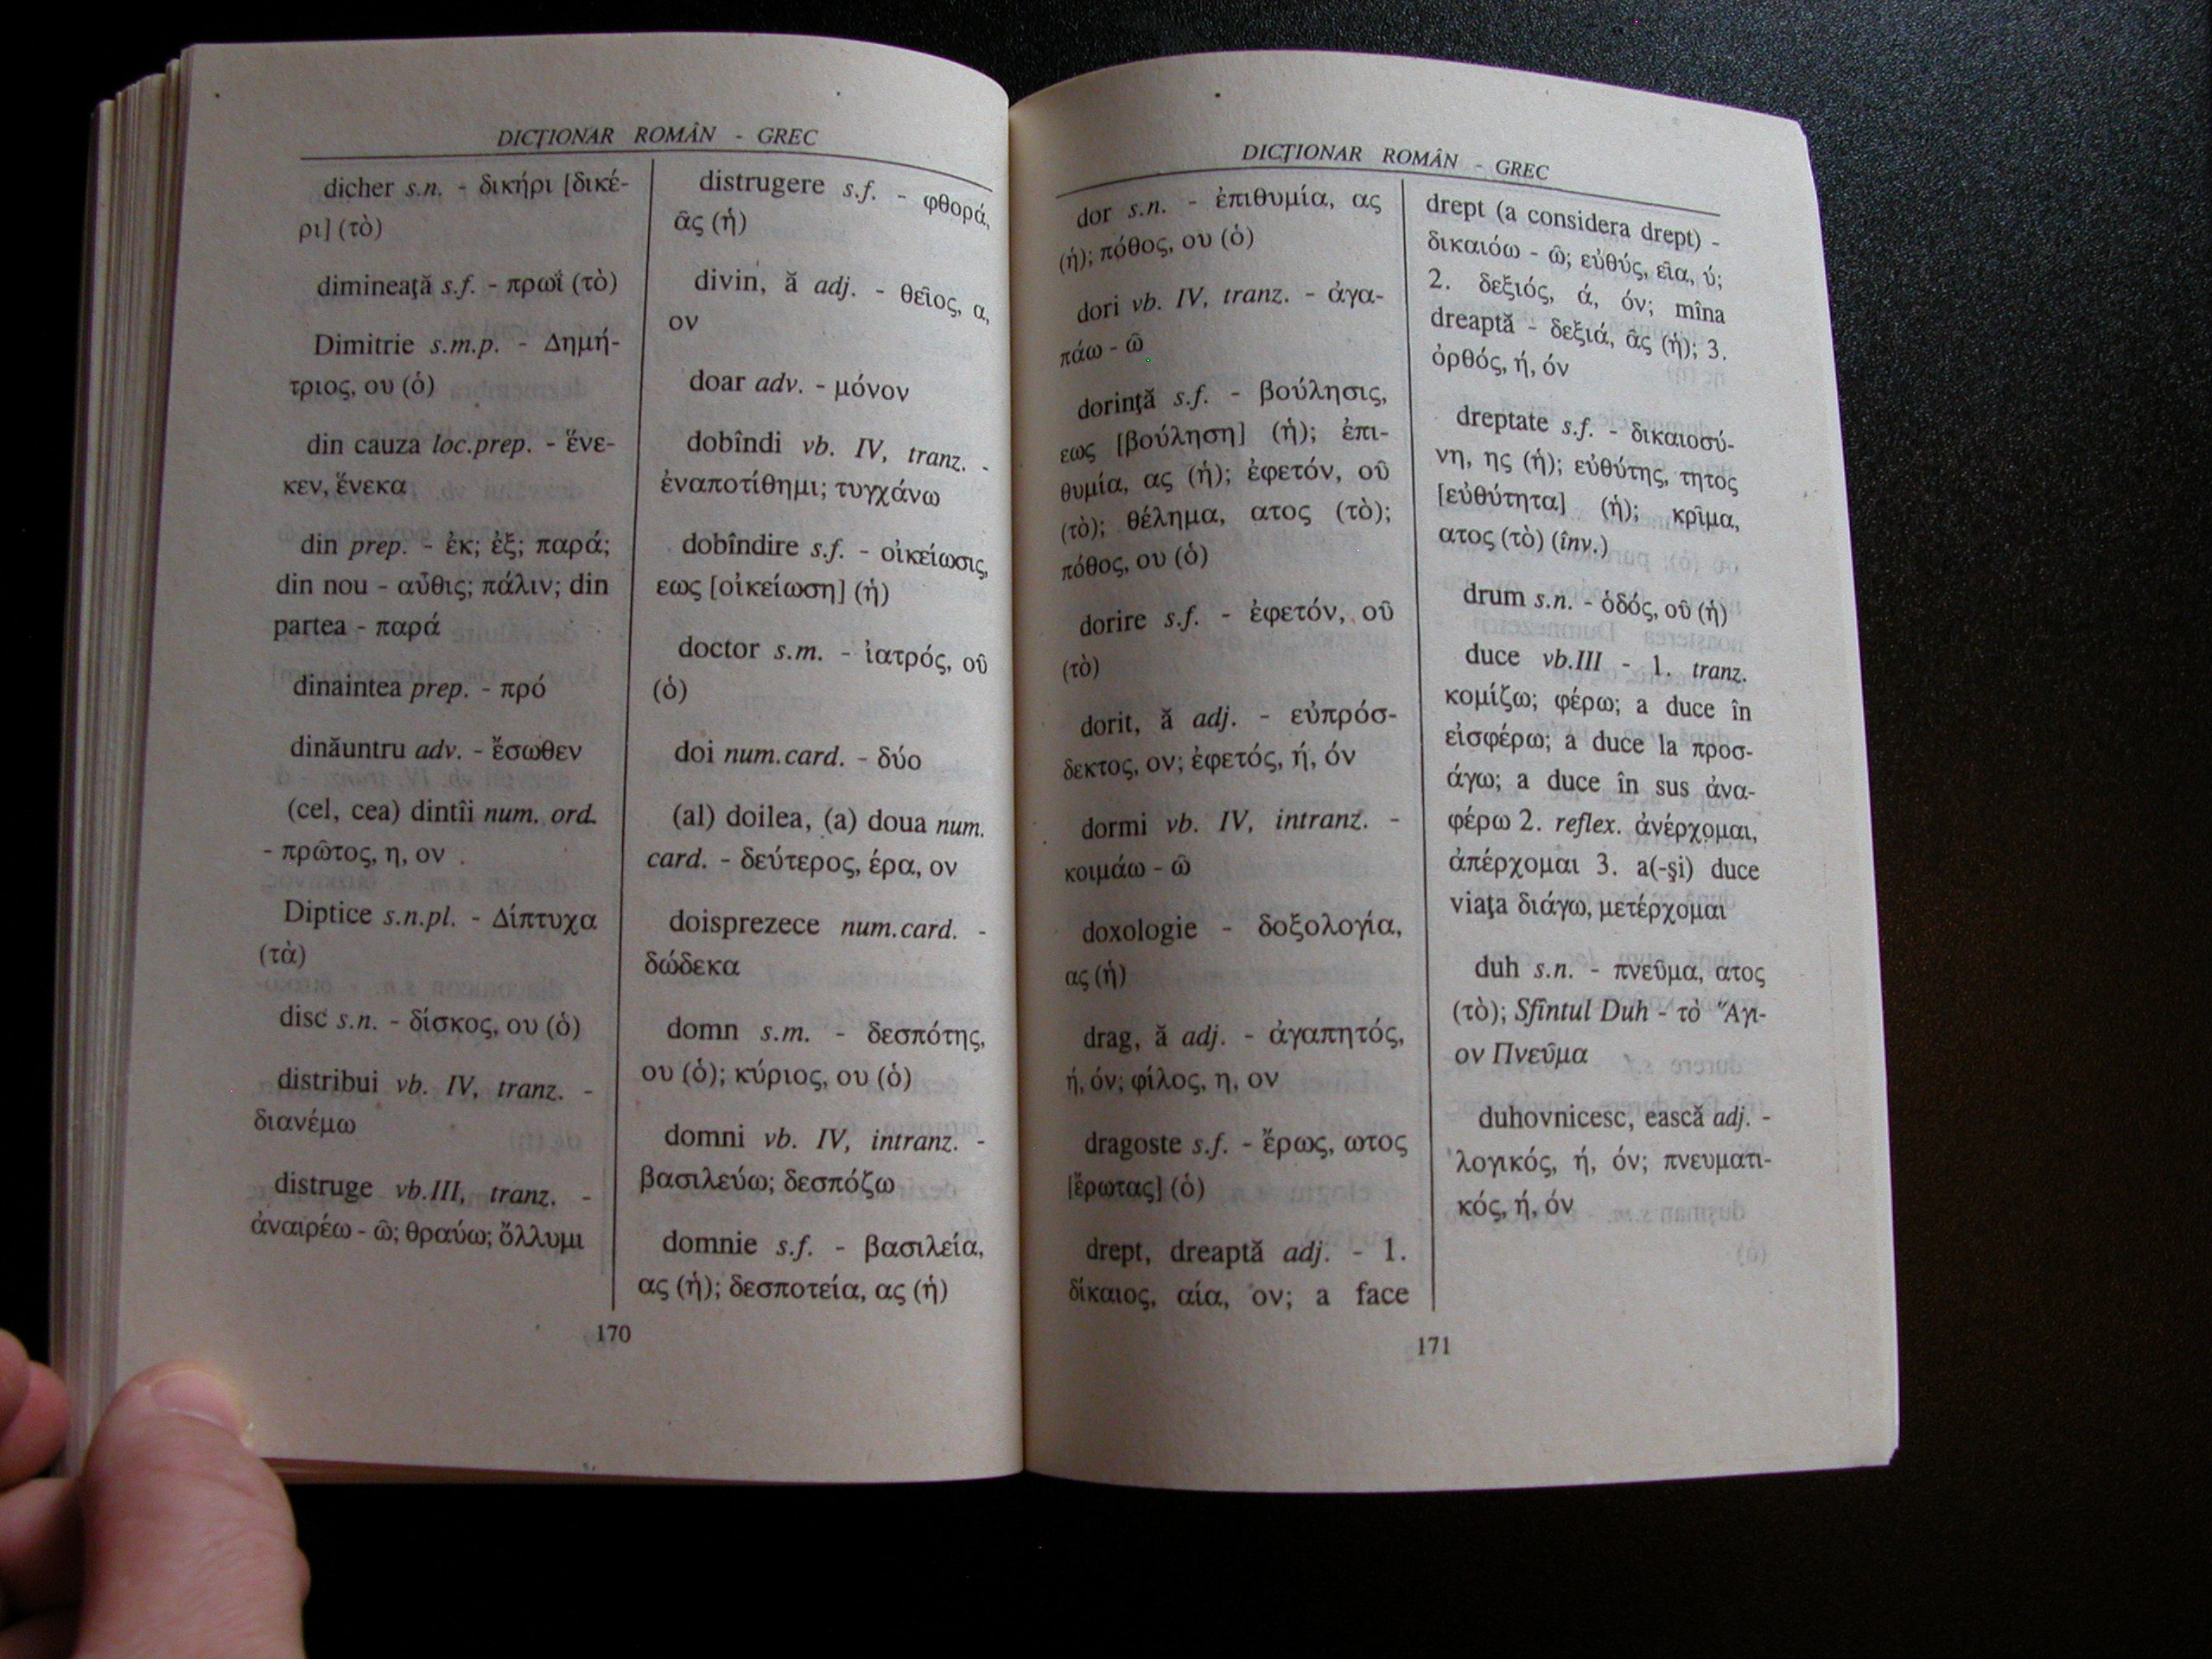 DICŢIONAR ROMÂN - GREC
dicher s.n. - δικήρι [δικέ-
ρι] (τὸ)
dimineaţă s.f. - πρωΐ (τὸ)
Dimitrie s.m.p. - Δημή-
τριος, ου (ὁ)
din cauza loc.prep. - ἕνε-
κεν, ἕνεκα
din prep. - ἐκ; ἐξ; παρά;
din nou - αὖθις; πάλιν; din
partea - παρά
dinaintea prep. - πρό
dinăuntru adv. - ἔσωθεν
(cel, cea) dintîi num. ord.
- πρῶτος, η, ον
Diptice s.n.pl. - Δίπτυχα
(τὰ)
disc s.n. - δίσκος, ου (ὁ)
distribui vb. IV, tranz. -
διανέμω
distruge vb.III, tranz. -
ἀναιρέω - ῶ; θραύω; ὄλλυμι
distrugere s.f. - φθορά,
ᾶς (ἡ)
divin, ă adj. - θεῖος, α,
ον
doar adv. - μόνον
dobîndi vb. IV, tranz. -
ἐναποτίθημι; τυγχάνω
dobîndire s.f. - οἰκείωσις,
εως [οἰκείωση] (ἡ)
doctor s.m. - ἰατρός, οῦ
(ὁ)
doi num.card. - δύο
(al) doilea, (a) doua num.
card. - δεύτερος, έρα, ον
doisprezece num.card. -
δώδεκα
domn s.m. - δεσπότης,
ου (ὁ); κύριος, ου (ὁ)
domni vb. IV, intranz. -
βασιλεύω; δεσπόζω
domnie s.f. - βασιλεία,
ας (ἡ); δεσποτεία, ας (ἡ)
170
DICŢIONAR ROMÂN - GREC
dor s.n. - ἐπιθυμία, ας
(ἡ); πόθος, ου (ὁ)
dori vb. IV, tranz. - ἀγα-
πάω - ῶ
dorinţă s.f. - βούλησις,
εως [βούληση] (ἡ); ἐπι-
θυμία, ας (ἡ); ἐφετόν, οῦ
(τὸ); θέλημα, ατος (τὸ);
πόθος, ου (ὁ)
dorire s.f. - ἐφετόν, οῦ
(τὸ)
dorit, ă adj. - εὐπρόσ-
δεκτος, ον; ἐφετός, ή, όν
dormi vb. IV, intranz. -
κοιμάω - ῶ
doxologie - δοξολογία,
ας (ἡ)
drag, ă adj. - ἀγαπητός,
ή, όν; φίλος, η, ον
dragoste s.f. - ἔρως, ωτος
[ἔρωτας] (ὁ)
drept, dreaptă adj. - 1.
δίκαιος, αία, ον; a face
drept (a considera drept) -
δικαιόω - ῶ; εὐθύς, εῖα, ύ;
2. δεξιός, ά, όν; mîna
dreaptă - δεξιά, ᾶς (ἡ); 3.
ὀρθός, ή, όν
dreptate s.f. - δικαιοσύ-
νη, ης (ἡ); εὐθύτης, τητος
[εὐθύτητα] (ἡ); κρῖμα,
ατος (τὸ) (înv.)
drum s.n. - ὁδός, οῦ (ἡ)
duce vb.III - 1. tranz.
κομίζω; φέρω; a duce în
εἰσφέρω; a duce la προσ-
άγω; a duce în sus ἀνα-
φέρω 2. reflex. ἀνέρχομαι,
ἀπέρχομαι 3. a(-şi) duce
viaţa διάγω, μετέρχομαι
duh s.n. - πνεῦμα, ατος
(τὸ); Sfîntul Duh - τὸ Ἅγι-
ον Πνεῦμα
duhovnicesc, ească adj. -
λογικός, ή, όν; πνευματι-
κός, ή, όν
171